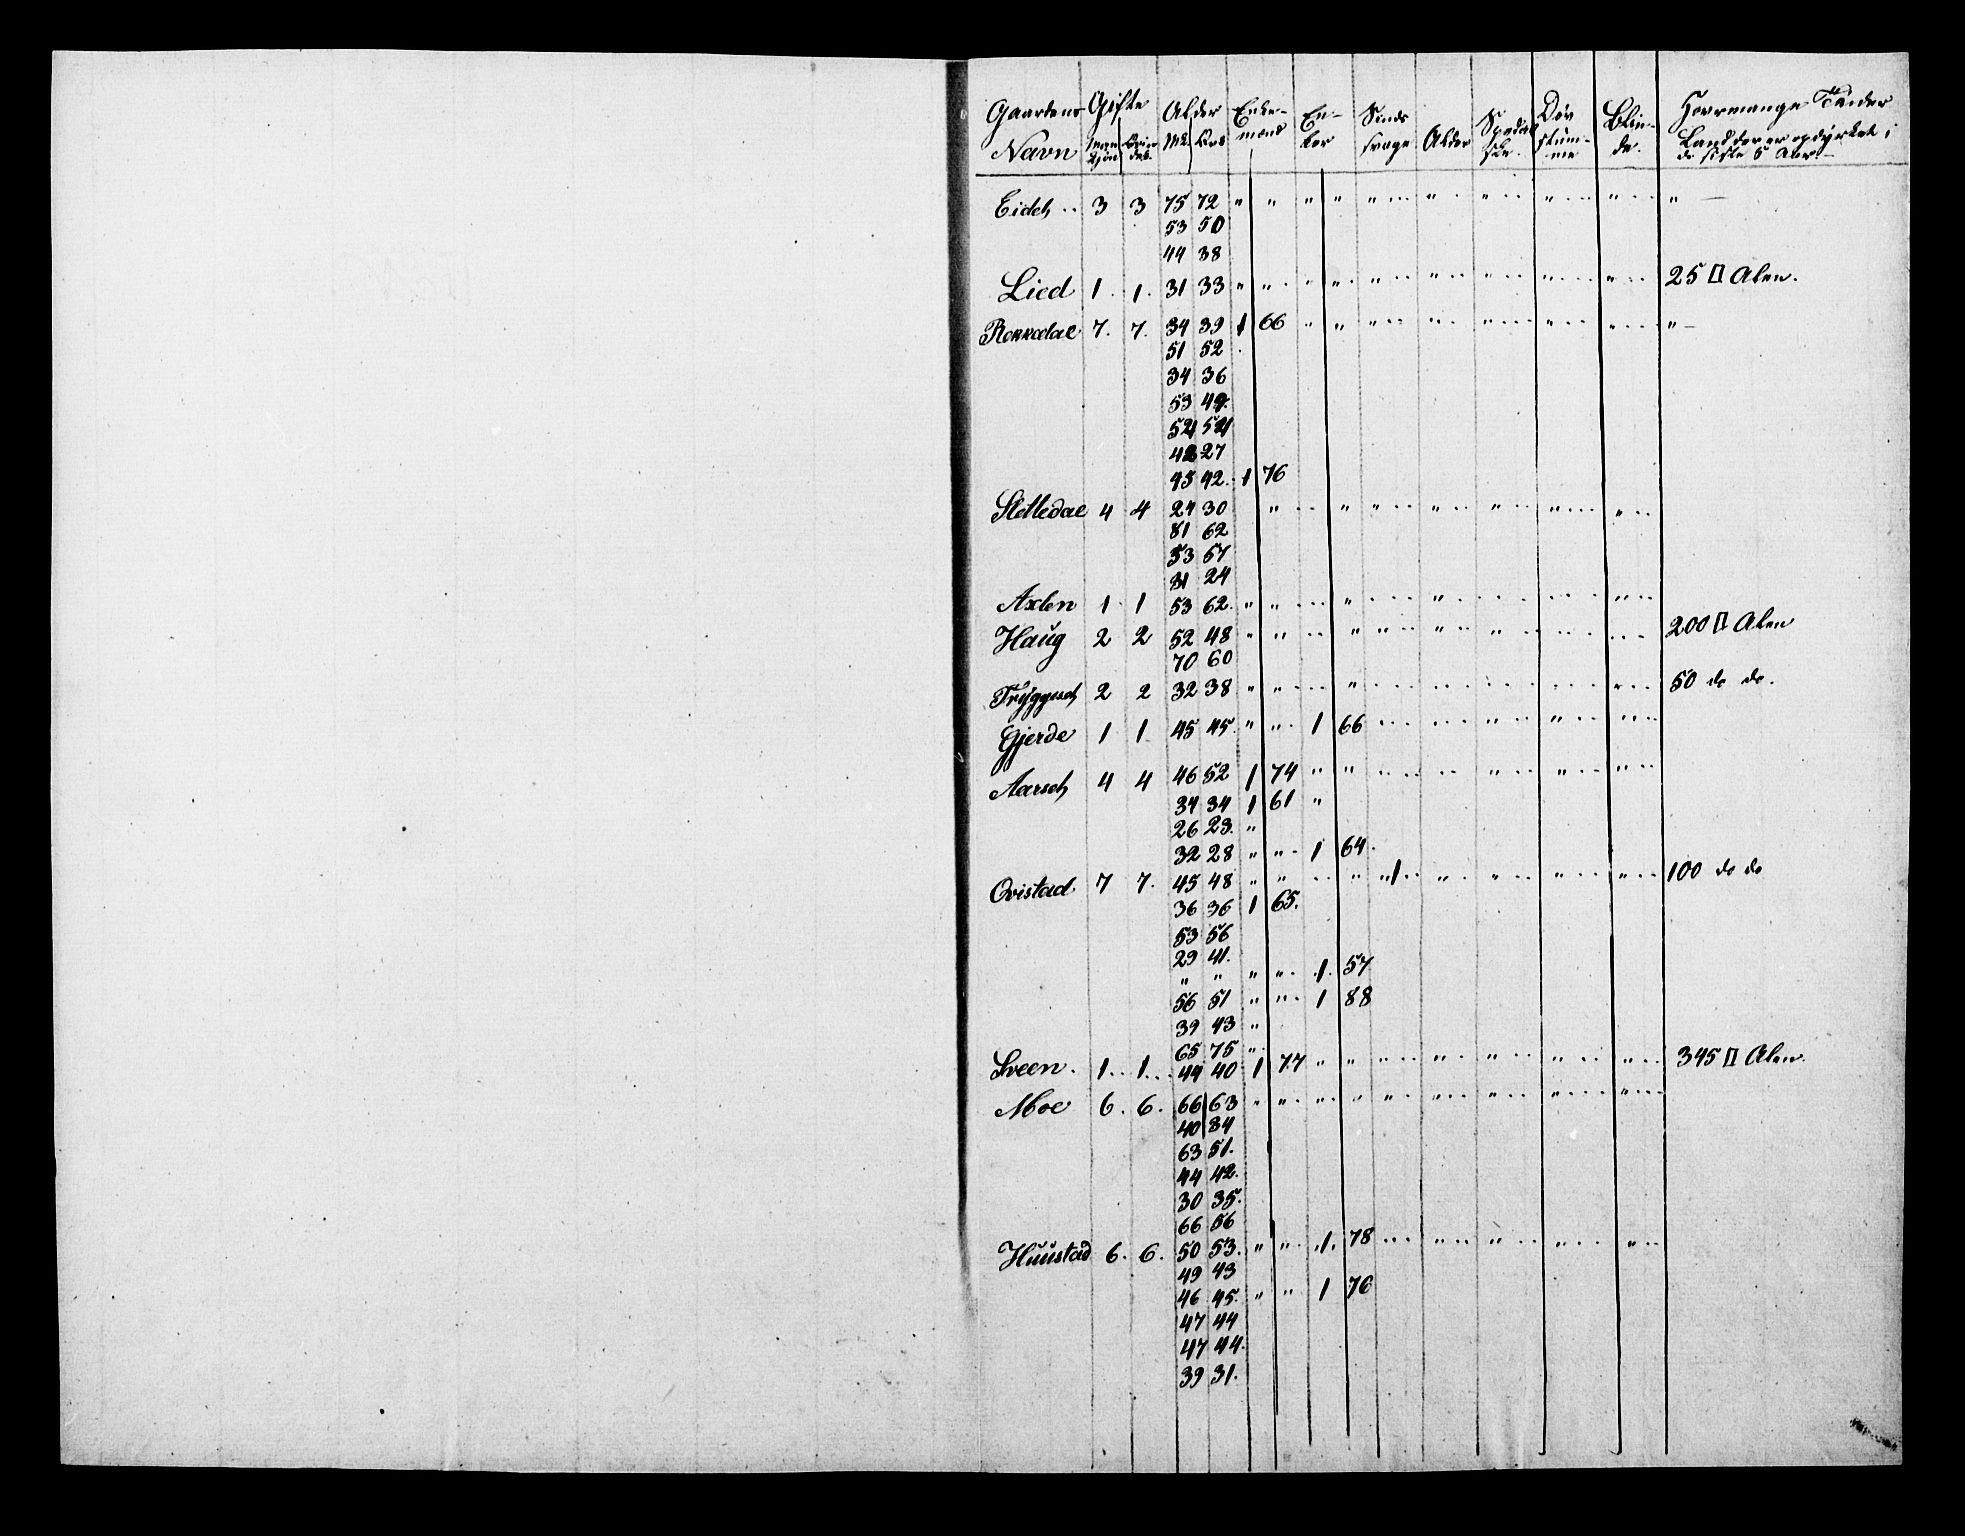 Gaardens Navn Gifte Mandkjøn Qvindes. Alder Mk Qvs Enkemænd Enker Sindssvage Alder Spedalske. Døvstumme Blinde. Hvormange Tønder Land der er opdyrket i de siste 5 Aar
Eideh .. 3 3 75 72 " " " " " .. " . " .. " .. " .. " —
53 50
44 38
Lied 1 . 1. 31 33 " " " " " .. " .. " .. " .. " .. 25 □ Alen.
7. 7. 34 39 1 66 " " " .. " .. " .. " .. " .. " —
51 52
34 36
53 49.
54 54
27
45 42. 1 76
Slettedal 4 4 24 30 " .. " " .. " .. " .. " .. " ..
81 62
53 57
31 24
Axlen 1 . 1 53 62. " " .. " .. " .. .. .. " ..
Haug 2 2 52 48 " " .. " " .. " .. " .. .. .. 200 □ Alen
70 60
Tryggeseth 2 2 32 38 " " .. " .. .. .. .. " .. 50 do do.
Gjerde 1 1 45 45. " " . 1 66 .. .. " .. " .. " ..
Aarseth 4 4 46 52 1 74 " " .. .. " .. " .. " ..
34 34 1 61 "
26 23. "
32 28 " " . 1 64.
Qvistad 7 7. 45 48 " " .. " " 1 .. " .. " .. " .. " .. 100 do do
36 36 1 65.
53 56
29 41.
" " " " . 1. 57
56 51 " " . 1 88
39 43 "
65 75 "
Sveen. 1.. 1.. 44 40 1 77 " " .. " .. " .. " .. " .. 345 □ Alen.
Moe 6. 6. 66 63 " " . " . " " . " .. " .. " .. " ..
40 34
63 51.
44 42.
30 35.
66 56
Huustad 6. 6. 50 53. " " . 1. 78 .. " .. " .. " .. " ..
49 43
46 45. " " 1 76
47 44
47 44.
39 31.